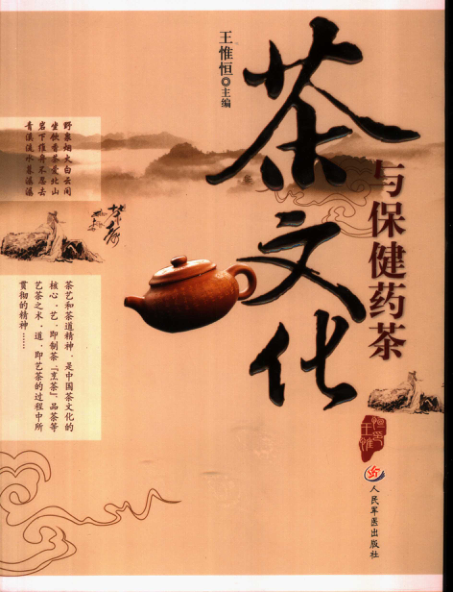 王惟恒◎主编
茶文化
与保健药茶
野泉烟火白云间
坐饮香茶爱此山
岩下维舟不忍去
青溪流水暮潺潺
茶艺和茶道精神，是中国茶文化的
核心。艺，即制茶、烹茶、品茶等
艺茶之术，道，即艺茶的过程中所
贯彻的精神……
人民军医出版社